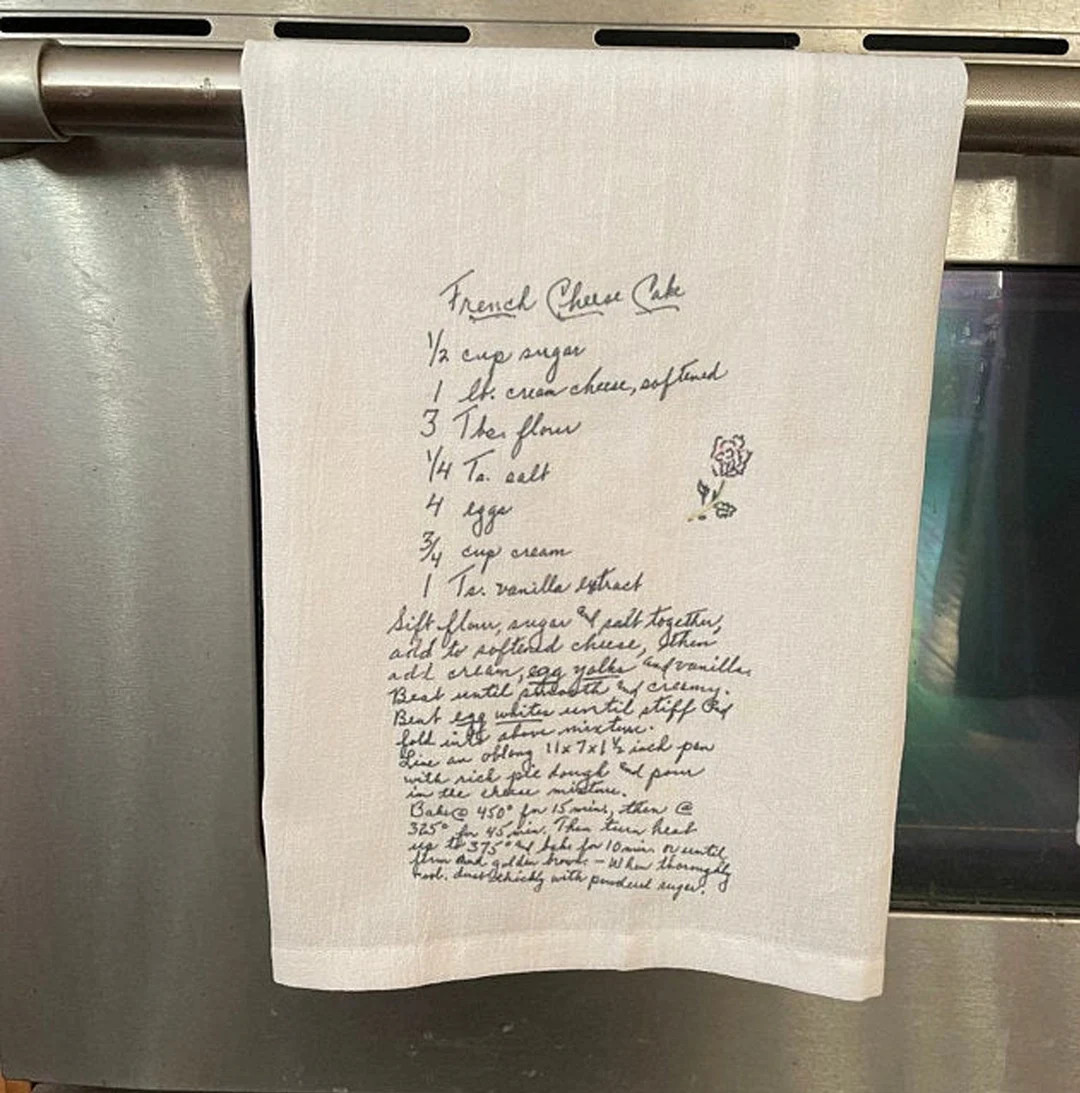 French Cheese Cake
1/2 cup sugar
1 lb. cream cheese, softened
3 Tbs. flour
1/4 Ts. salt
4 eggs
3/4 cup cream
1 Ts. vanilla extract
Sift flour, sugar and salt together,
add to softened cheese, then
add cream, egg yolks and vanilla.
Beat until smooth and creamy.
Beat egg whites until stiff and
fold into above mixture.
Line an oblong 11x7x1 1/2 inch pan
with rich pie dough and pour
in the cheese mixture.
Bake @ 450° for 15 mins, then @
325° for 45 min. Then turn heat
up to 375° and bake for 10 min. or until
firm and golden brown - When thoroughly
cool, dust thickly with powdered sugar.